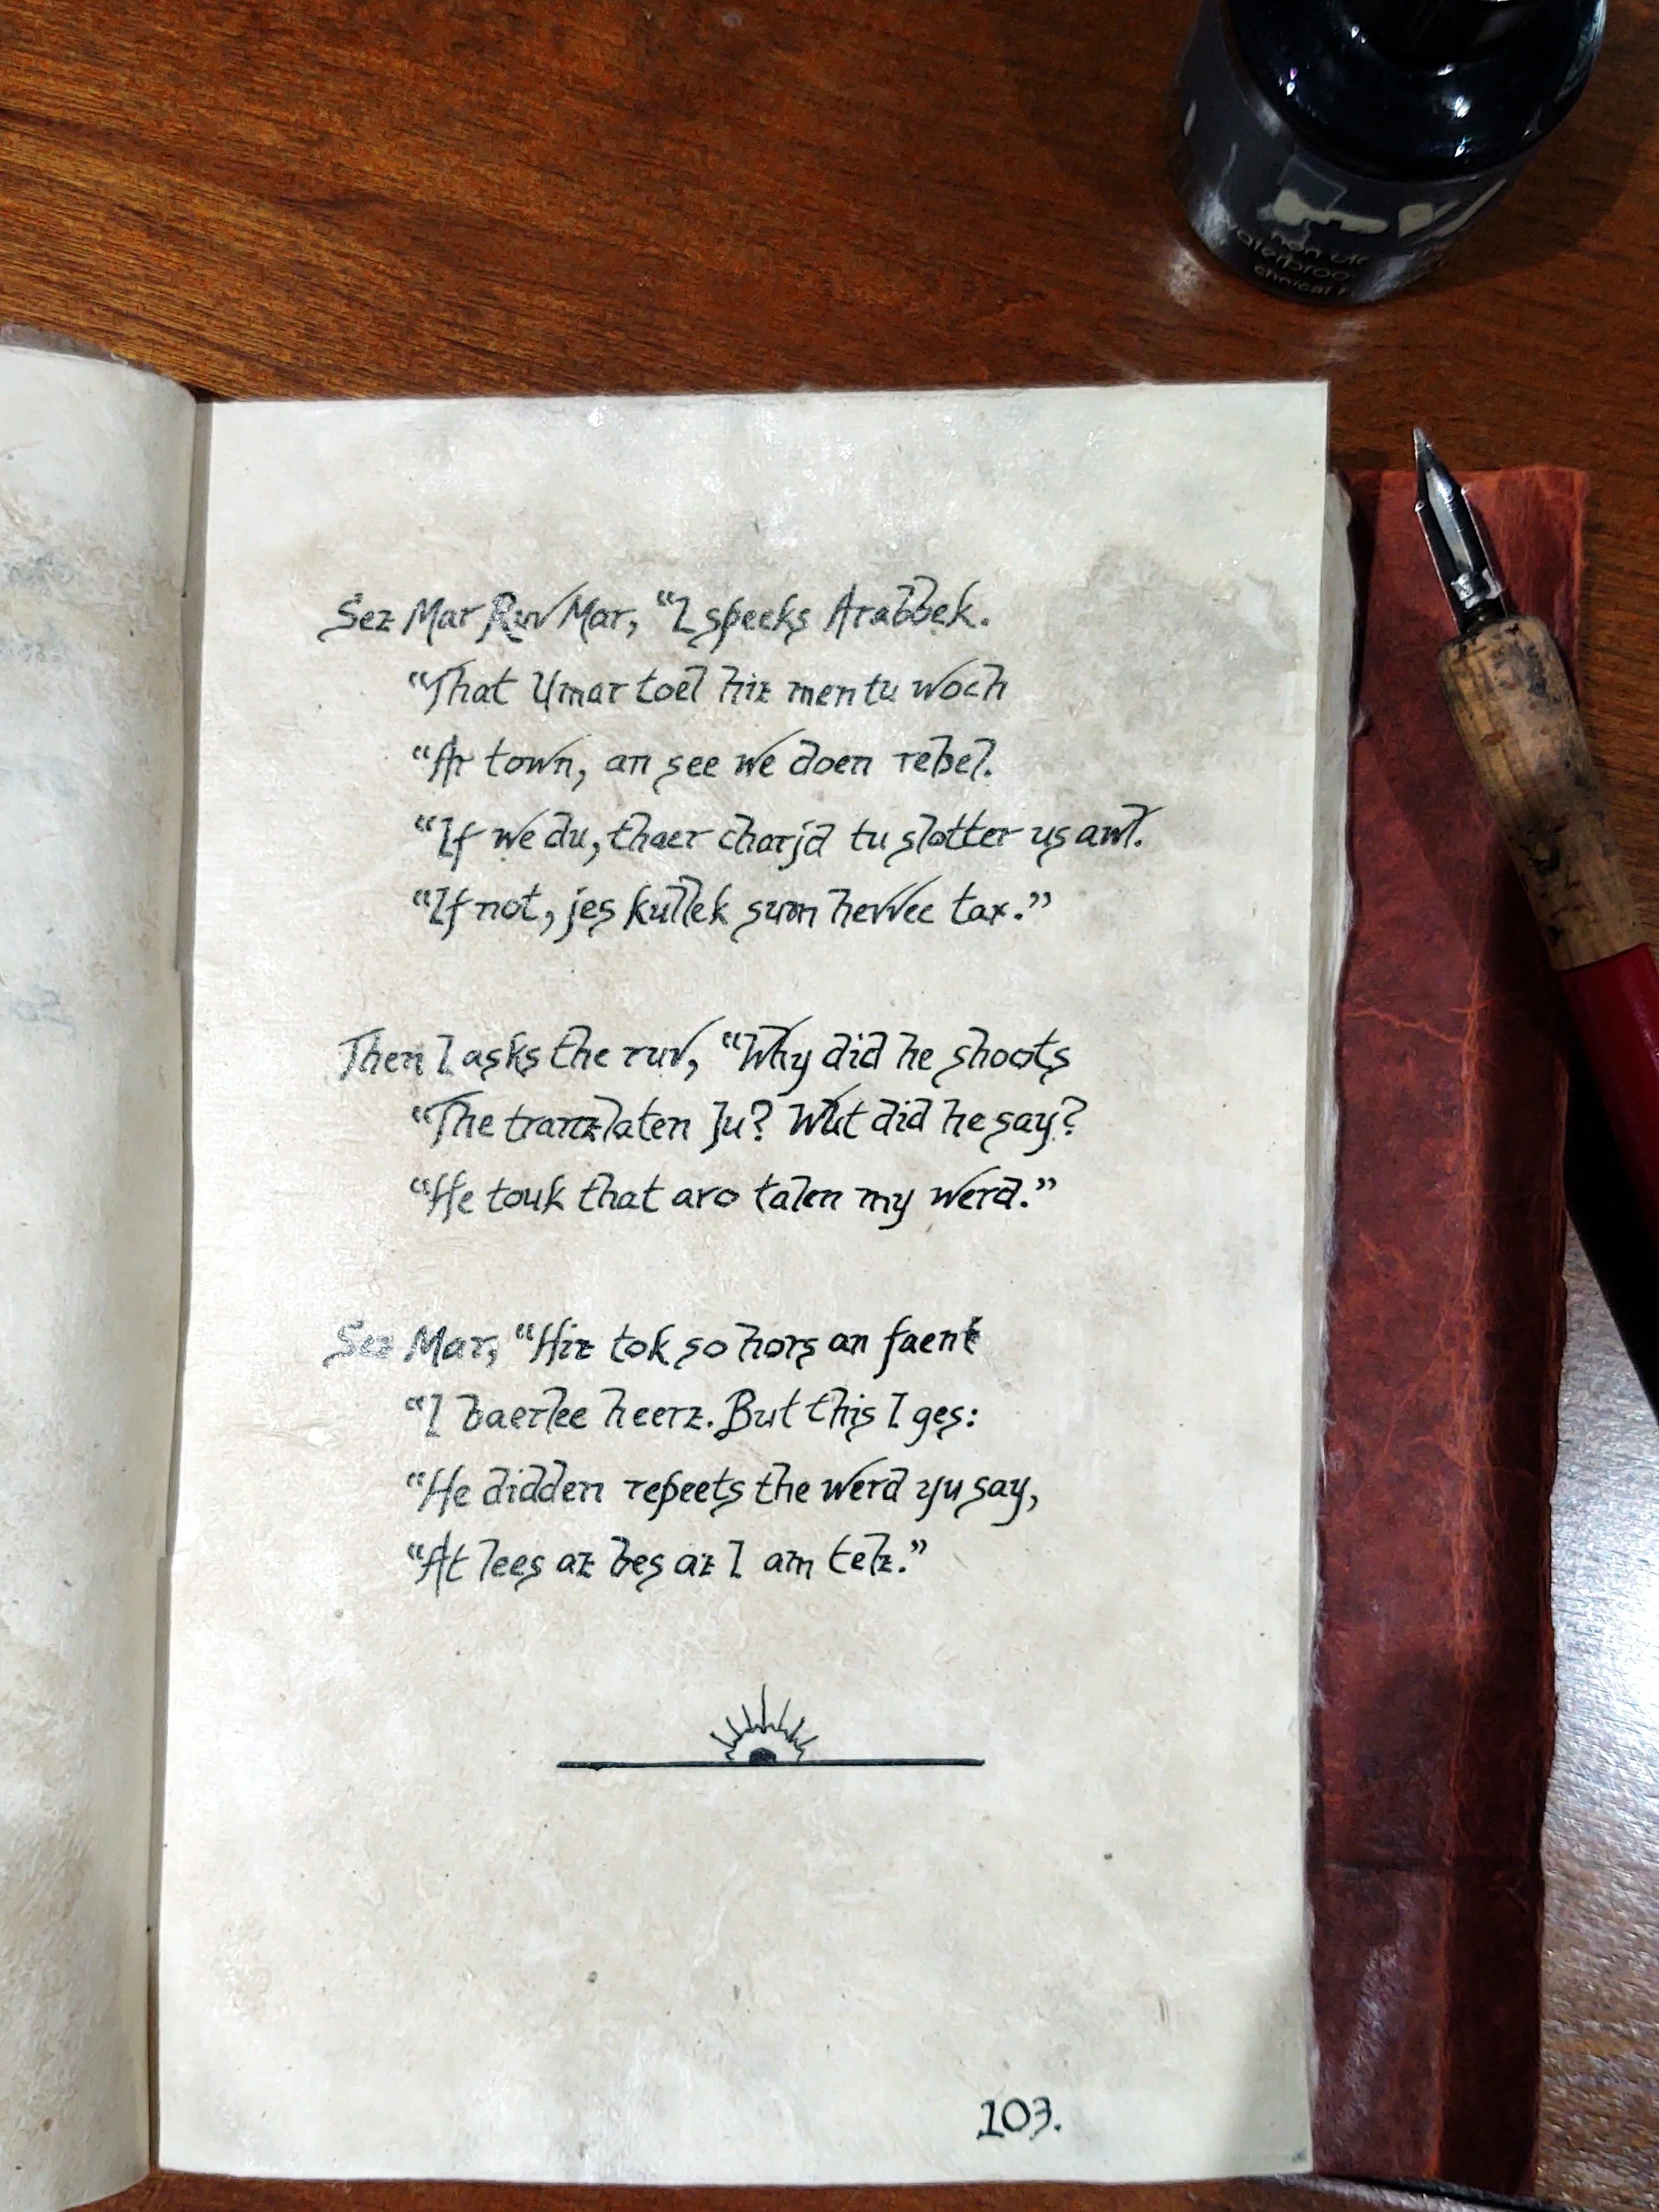 Sez Mar Ruv Mar, “I speeks Arabbek.
“That Umar toel hiz men tu woch
“Ar town, an see we doen rebel.
“If we du, thaer charjd tu slotter us awl.
“If not, jes kullek sum hevvee tax.”
Then I asks the ruv, “Why did he shoots
“The tranzlaten Ju? Wut did he say?
“He touk that aro talen my werd.”
Sez Mar, “Hiz tok so hors an faent
“I baerlee heerz. But this I ges:
“He didden repeets the werd yu say,
“At lees az bes az I am telz.”
103.